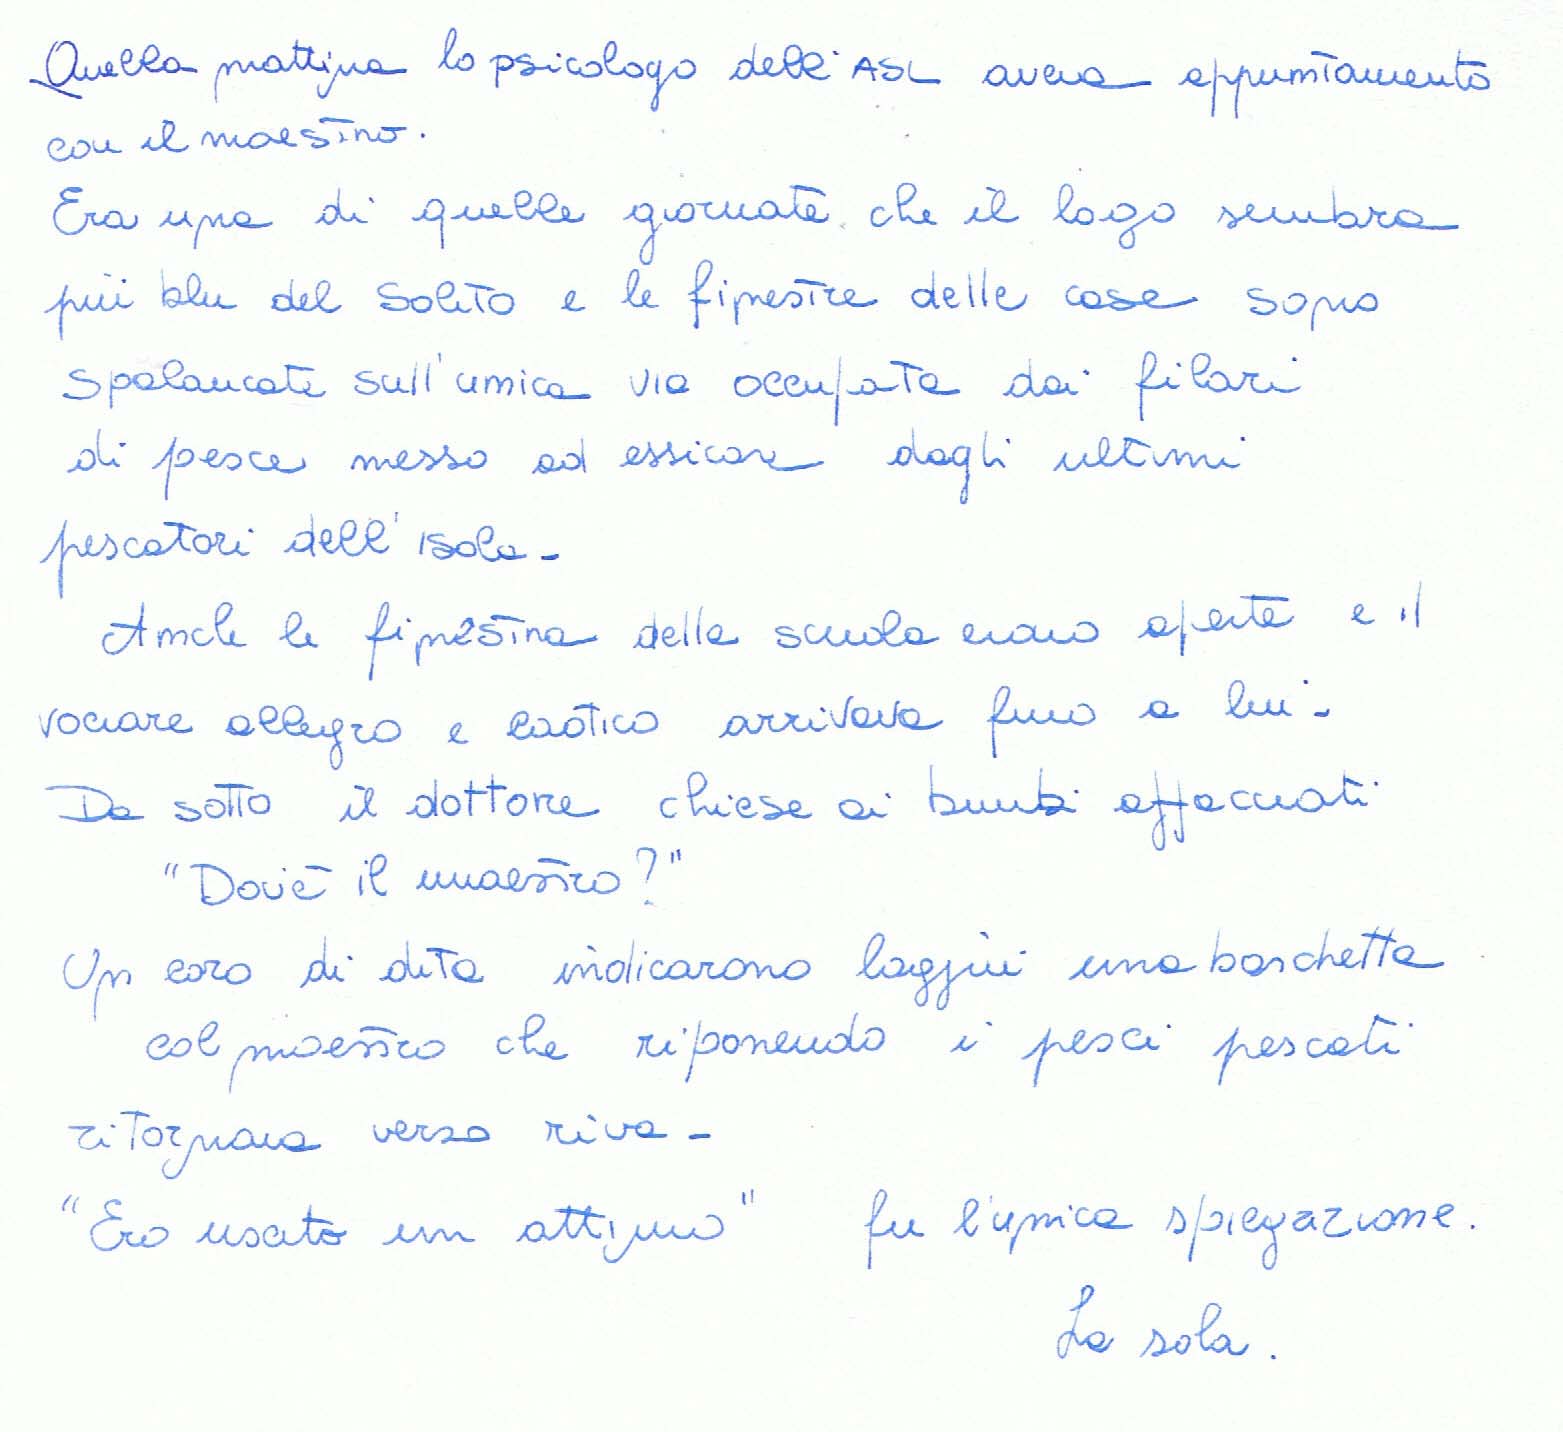 Quella mattina lo psicologo dell'ASL aveva appuntamento
con il maestro.
Era una di quelle giornate che il lago sembra
più blu del solito e le finestre delle case sono
spalancate sull'unica via occupata dai filari
di pesce messo ad essicare dagli ultimi
pescatori dell'isola -
Anche le finestra della scuola erano aperte e il
vociare allegro e caotico arrivava fino a lui -
Da sotto il dottore chiese ai bimbi affacciati
"Dov'è il maestro?"
Un coro di dita indicarono laggiù una barchetta
col maestro che riponendo i pesci pescati
ritornava verso riva -
"Ero uscito un attimo" fu l'unica spiegazione.
La sola.